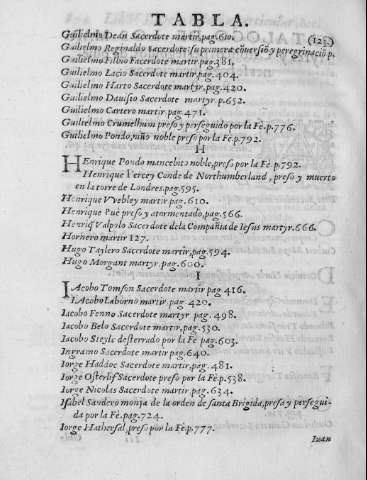 TABLA.
Guilielmo Deán Sacerdote martir, pag. 610.
Guilielmo Reginaldo Sacerdote: su primera cõuersiõ y peregrinació p. (125)
Guilielmo Filbio Sacerdote martir, pag. 381.
Guilielmo Lacio Sacerdote martir, pag. 404.
Guilielmo Harto Sacerdote martir, pag. 420.
Guilielmo Dausio Sacerdote martyr p. 652.
Guilielmo Cartero martir pag. 471.
Guilielmo Crumelhum preso y perseguido por la Fè. p. 776.
Guilielmo Pondo, niño noble preso por la Fè. p. 792.
H
HEnrique Pondo mancebito noble, preso por la Fè. p. 792.
Henrique Percey Conde de Northumberland, preso y muerto
en la torre de Londres, pag. 595.
Henrique VVebley martir pag. 610.
Henrique Pue preso y atormentado, pag. 566.
Henriq Valpolo Sacerdote de la Compañia de Iesus martyr. 666.
Hornero martir 127.
Hugo Taylero Sacerdote martir, pag. 594.
Hugo Morgant martyr. pag. 600.
I
IAcobo Tomson Sacerdote martir pag 416.
IAcobo Laborno martir, pag. 420.
Iacobo Fenno Sacerdote martyr pag. 498.
Iacobo Belo Sacerdote martir, pag. 530.
Iacobo Steyle desterrado por la Fè pag. 603.
Ingramo Sacerdote martir pag. 640.
Iorge Haddoc Sacerdote martir, pag. 481.
Iorge Osterlif Sacerdote preso por la Fè. p. 538.
Iorge Nicolas Sacerdote martir, pag. 634.
Isabel Sandero monja de la orden de santa Brigida, presa y persegui-
da por la Fè. pag. 724.
Iorge Hathersal, preso por la Fè. p. 777.
Iuan